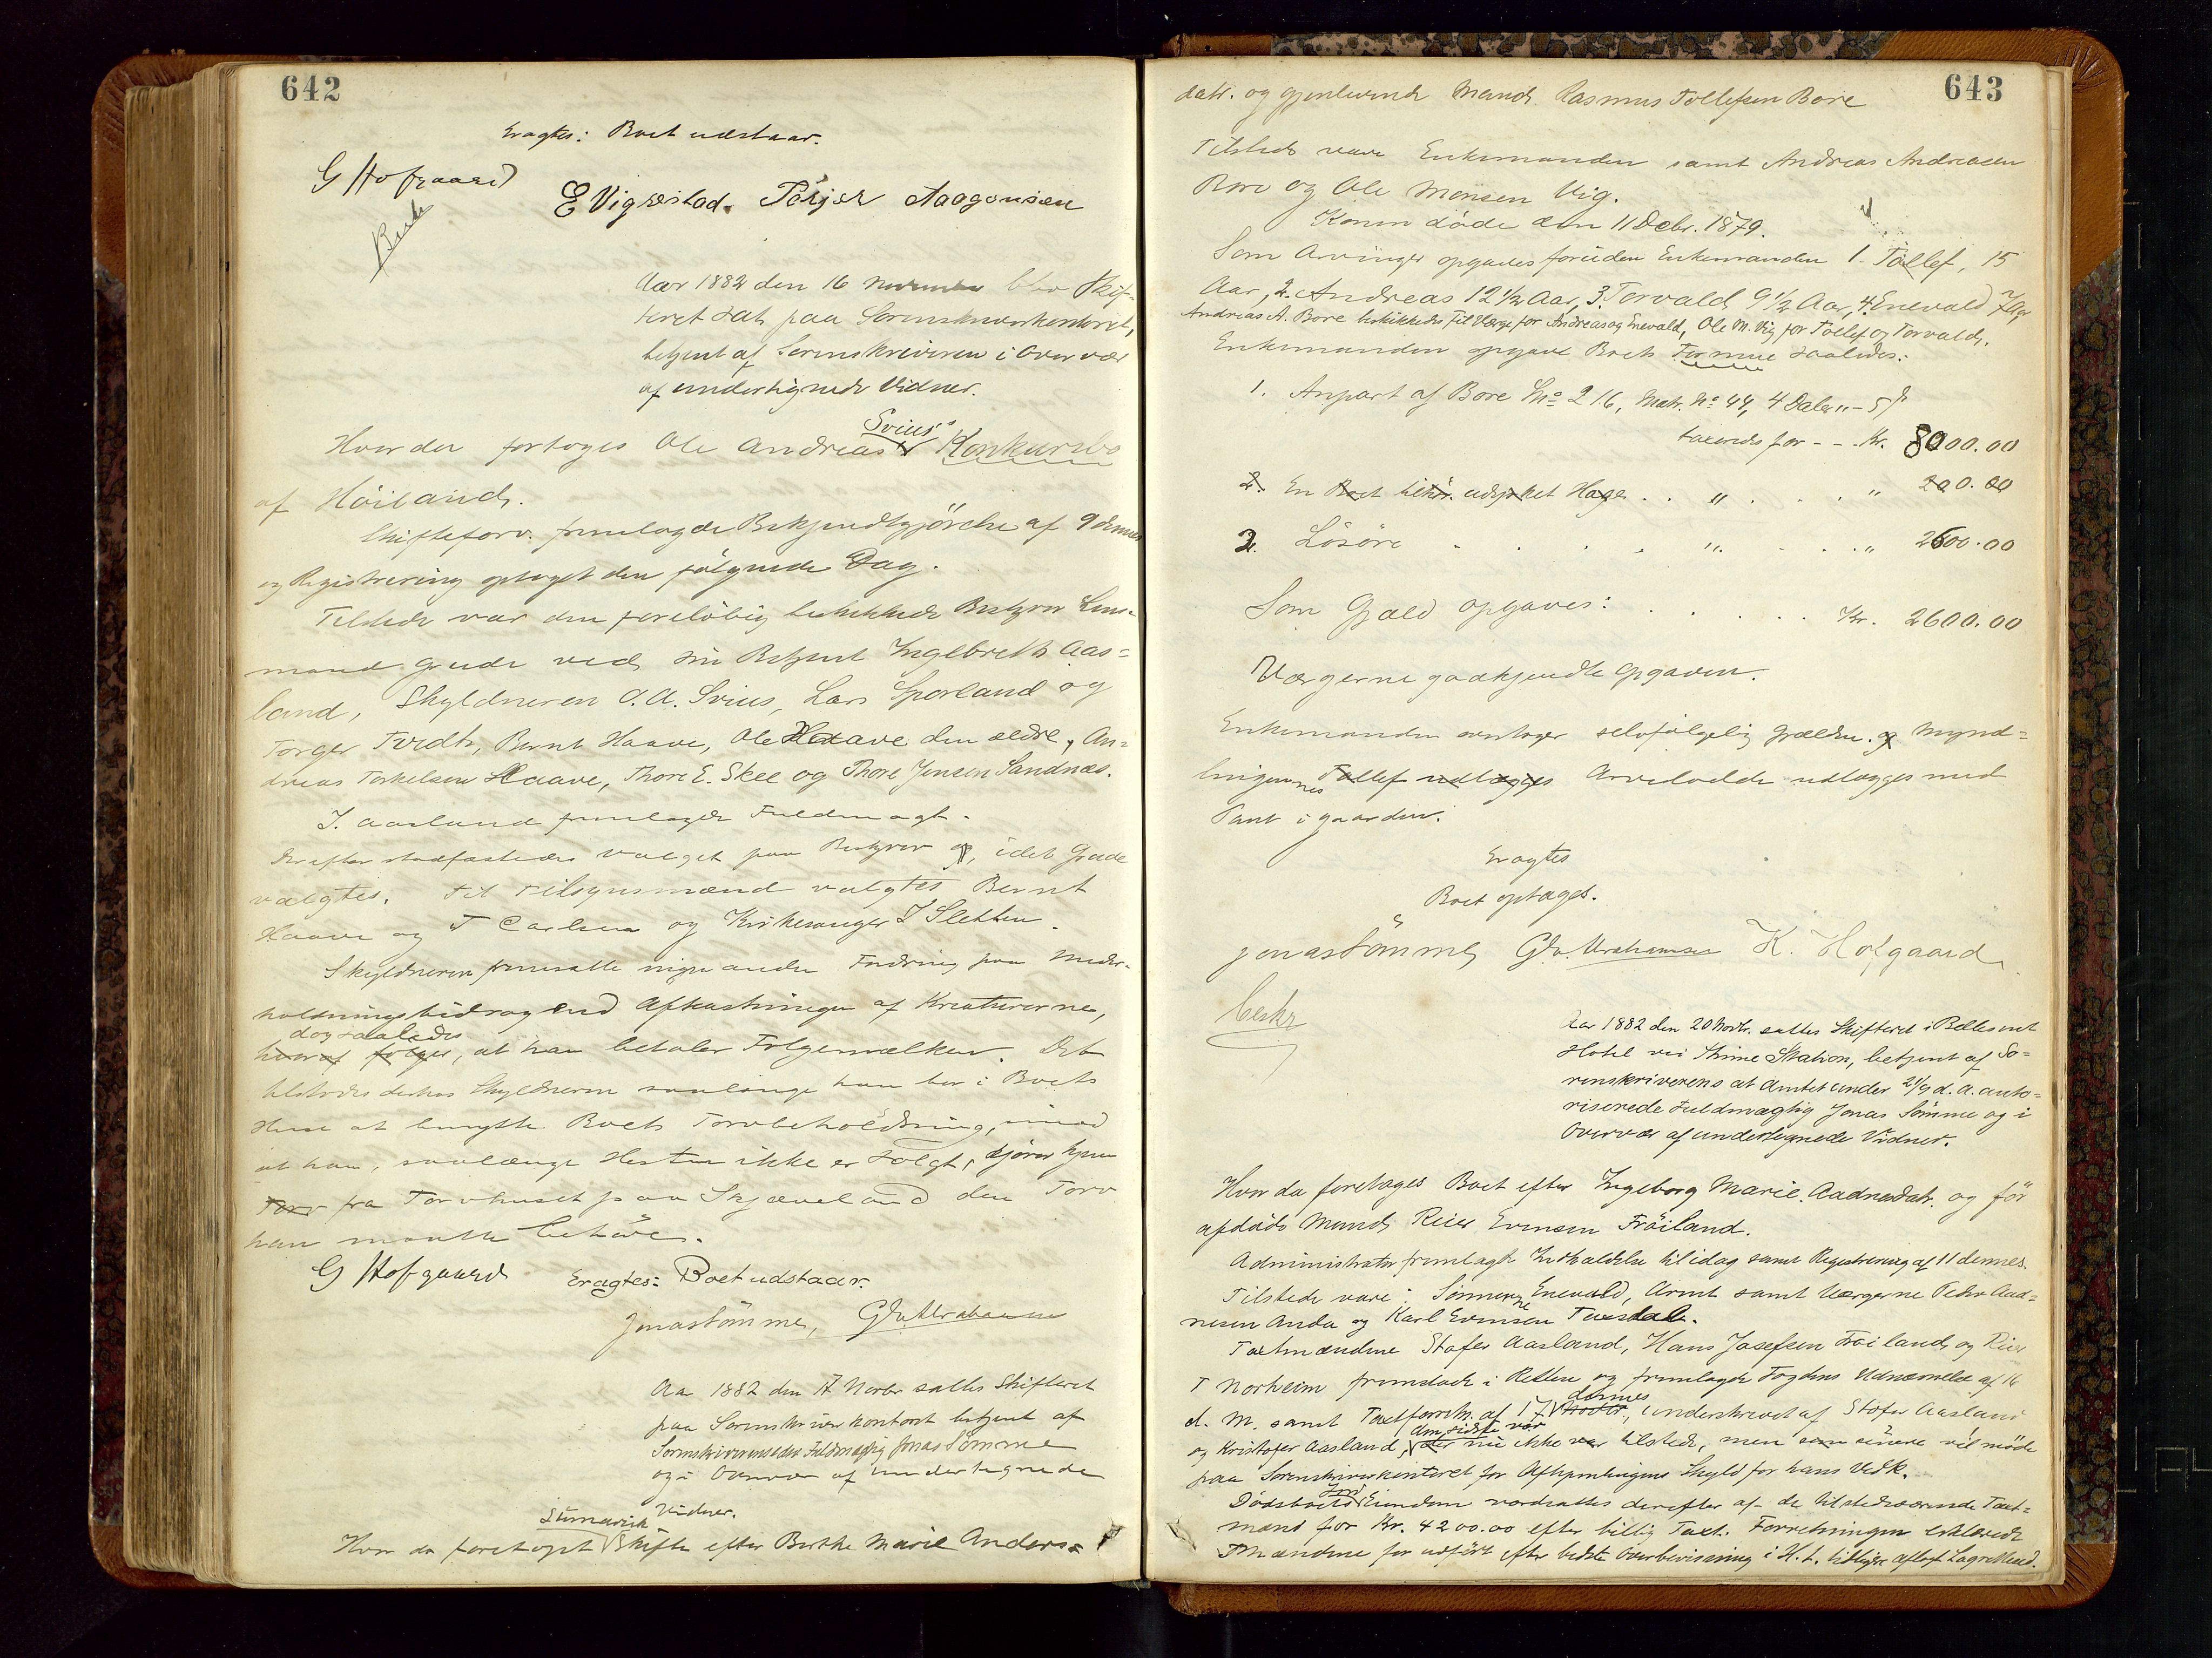 642
Eragtes: Boet udstaar.
G Hofgaard
E Vigrestad. Tørjer Aaogensen
Aar 1882 den 16 November blev Skif-
teret sat paa Sorenskriverkontoret,
betjent af Sorenskriveren i Overvær
af undertegnede Vidner.
Svius's
Hvor da foretoges Ole Andreas Konkursbo
af Höiland.
Skifteforv. fremlagde Bekjendtgjörelse af 9 dennes
og Registrering optaget den fölgende Dag.
Tilstede var den forelöbig beskikkede Bestyrer Lens-
mand Grude ved sin Betjent Ingebreth Aas=
land, Skyldneren O. A. Svius, Lars Sporland og
Torger Tvedt, Bernt Haave, Ole Haave den ældre, An=
dreas Torkelsen Haave, Thore E. Skee og Thore Jensen Sandnæs.
I. Aasland fremlagde Fuldmagt.
Derefter stadfæstedes Valget paa Bestyrer og, idet Grude
valgtes. Til Tilsynsmænd valgtes Bernt
Haave og T Carlsen og Kirkesanger I Sletten.
Skyldneren fremsatte ingen anden Fordring paa Under-
holdningsbidrag end Afkastningen af Kreaturerne,
dog saaledes
hvoraf fölger, at han betaler Fölgemælken. Det
tilstedes derhos Skyldneren saalænge han bor i Boets
Huse at benytte Boets Torvbeholdning, imod
at han, saalænge Hesten ikke er solgt, kjörer hjem
Torv fra Torvhuset paa Skjæveland den Torv
han maatte behöve.
G Hofgaard
Eragtes: Boet udstaar.
Jonas Sömme, Gb. Abrahamsen
Aar 1882 den 17 Novbr sattes Skifteret
paa Sorenskriverkontoret betjent af
Sorenskriverens edsv. Fuldmægtig Jonas Sömme
og i Overvær af undertegnede
Vidner.
Sumarisk
Hvor da foretoges Skifte efter Berthe Marie Anders=
643
datr. og gjenlevende Mand Rasmus Tollefsen Bore
Tilstede vare Enkemanden samt Andreas Andreasen
Bore og Ole Monsen Vig.
Konen döde den 11 Debr. 1879.
Som Arvinger opgaves foruden Enkemanden 1. Tollef, 15
Aar, 2. Andreas 12 1/2 Aar, 3. Torvald 9 1/2 Aar, 4. Enevald 7 Aar
Andreas A. Bore beskikkedes til Værge for Andreas og Enevald, Ole M. Vig for Tollef og Torvald.
Enkemanden opgave Boets Formue saaledes:
1. Anpart af Bore No 216, Matr. No 44, 4 Daler „ - 5 ß
taxeredes for - - Kr. 8000.00
2. En Boet tilhör. udsp ket Hage . . „ . . . „ 200.00
2. Lösöre . . . . „ . . . „ 2600.00
Som Gjæld opgaves: . . . . . Kr. 2600.00
Værgerne godkjendte Opgaven.
Enkemanden overtager selvfölgelig Gjælden. og Mynd=
lingernes Tollef udlægges Arvelodde udlægges med
Pant i Gaarden.
Eragtes
Boet optages.
Jonas Sömme, Gb. Abrahamsen K. Hofgaard
Beskr
Aar 1882 den 20 Novbr. sattes Skifteret i Bellesens
Hotel ved Thime Station, betjent af So=
renskriverens at Amtet under 21/9 d. A. auto=
riserede Fuldmægtig Jonas Sömme og i
Overvær af undertegnede Vidner.
Hvor da foretages Boet efter Ingeborg Marie Aadnesdatr. og för
afdöde Mand Reier Evensen Fröiland.
Administrator fremlagde Indkaldelse til idag samt Registrering af 11 dennes.
Tilstede vare: Sönnerne Enevald, Arnt samt Værgerne Peder Aad=
nesen Anda og Karl Evensen Tuesdale.
Taxtmændene Stofer Aasland, Hans Josefsen Fröiland og Reier
T Norheim fremstode i Retten og fremlagde Fogdens Udnævnelse af 16
dennes
d. M. samt Taxtforretn. af 17 Novbr, underskrevet af Stofer Aasland
den sidste var
og Kristofer Aasland, der nu ikke var tilstede, men som senere vil möde
paa Sorenskriverkontoret for Afhjemlingens Skyld for hans Vedk.
Jord
Dödsboets Eiendom vordsattes derefter af de tilstedeværende Taxt=
mænd for Kr. 4200.00 efter billig Taxt. Forretningen erklærede
Mændene for udfört efter bedste Overbevisning i H. t. tidligere aflagt Lagrettesed.